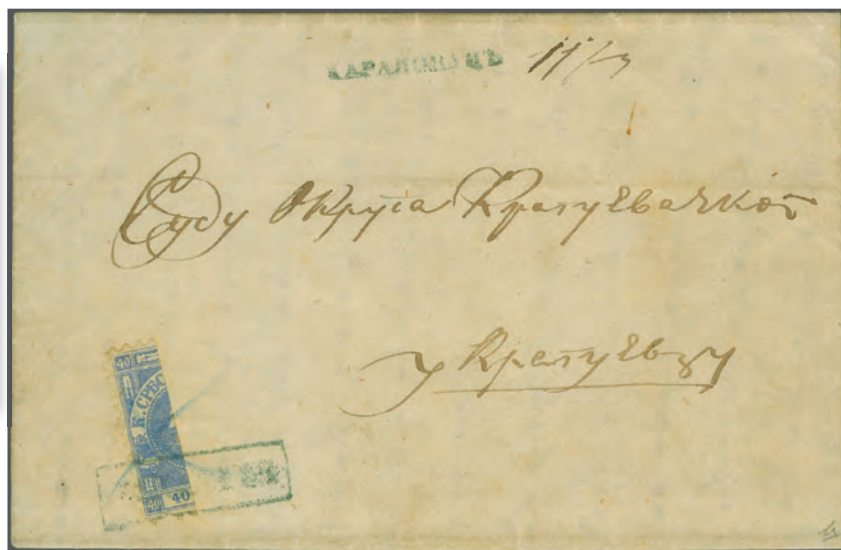 КАРАНОВАЦЪ 11/3
Суду Округа Крагуевачког
у Крагуевцу
40
К. СРБС
40 40